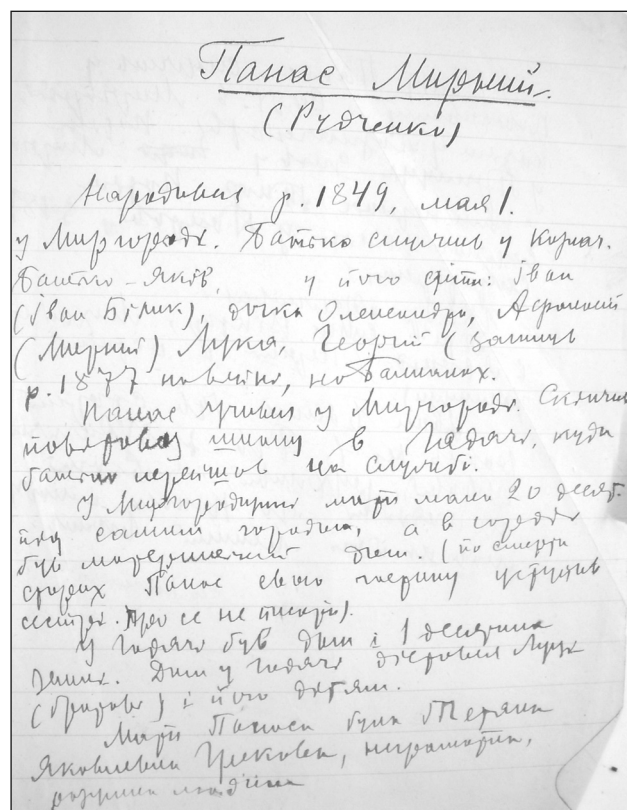 Панас Мирний.
(Рудченко)
Народився р. 1849, мая 1.
у Миргороді. Батько служив у казнач.
Батько - Яків, у його діти: Іван
(Іван Білик), дочка Олександра, Афанасий
(Мирний) Лука, Георгій (загинув
р. 1877 на війні, на Балканах.
Панас учився у Миргороді. Скінчив
повітову школу в Гадячі, куди
батько перейшов на службі.
У Миргородщині мати мала 20 десят.
під самим городом, а в городі
був материнський дім. (По смерті
старих Панас свою частину уступив
сестрі. Про се не писати).
У Гадячі був дім і 1 десятина
землі. Дім у Гадячі дістався Луці
(братові) і його дітям.
Мати Панаса була Тетяна
Яковлевна, неграмотна,
людина